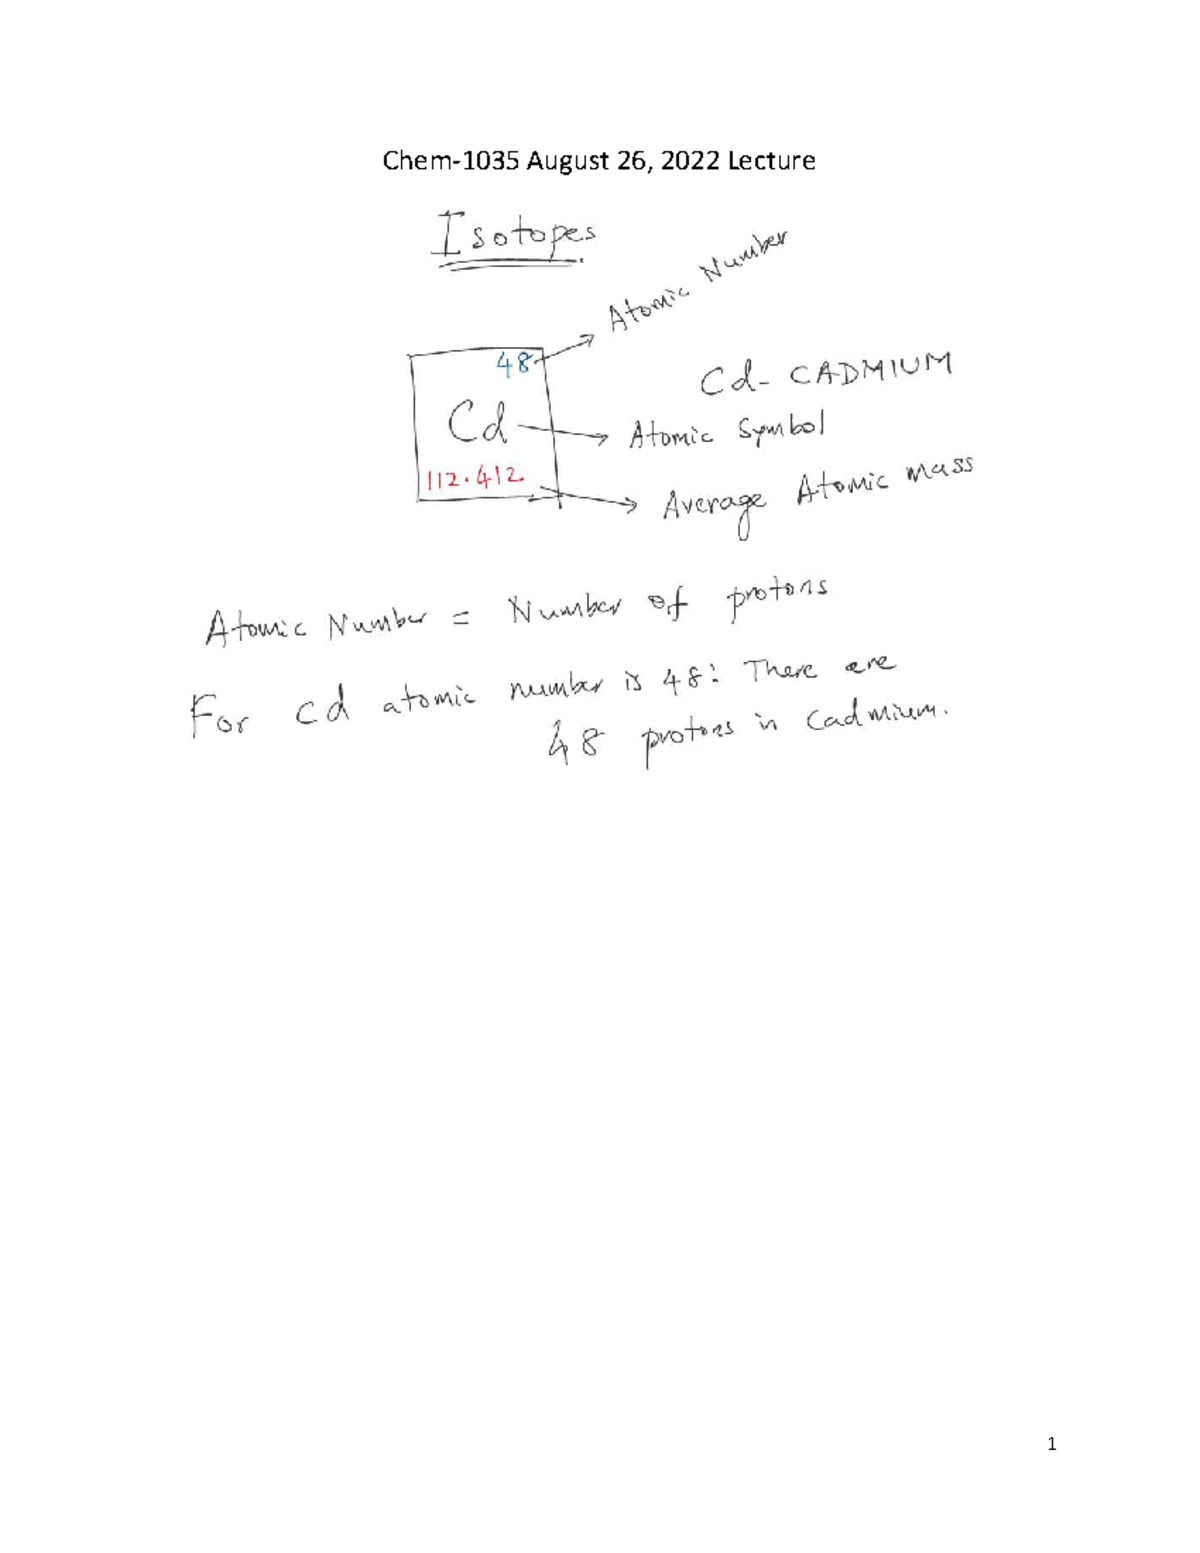 Chem-1035 August 26, 2022 Lecture
Isotopes
Atomic Number
48
Cd- CADMIUM
Cd
Atomic Symbol
112.412
Average Atomic mass
Atomic Number = Number of protons
For cd atomic number is 48: There are
48 protons in cadmium.
1